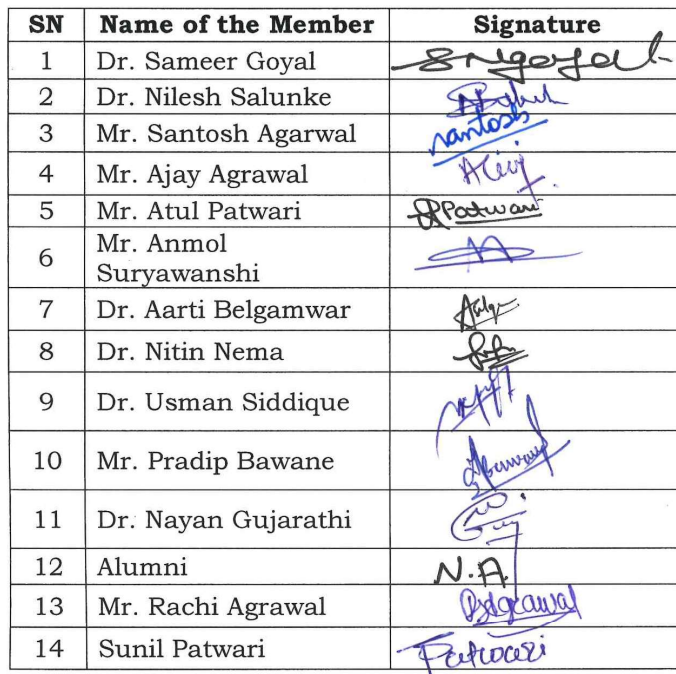 SN Name of the Member Signature
1 Dr. Sameer Goyal SNgoyal
2 Dr. Nilesh Salunke
3 Mr. Santosh Agarwal santosh
4 Mr. Ajay Agrawal
5 Mr. Atul Patwari Patwari
6 Mr. Anmol
Suryawanshi
7 Dr. Aarti Belgamwar
8 Dr. Nitin Nema
9 Dr. Usman Siddique
10 Mr. Pradip Bawane
11 Dr. Nayan Gujarathi
12 Alumni N.A.
13 Mr. Rachi Agrawal RAgrawal
14 Sunil Patwari Patwari